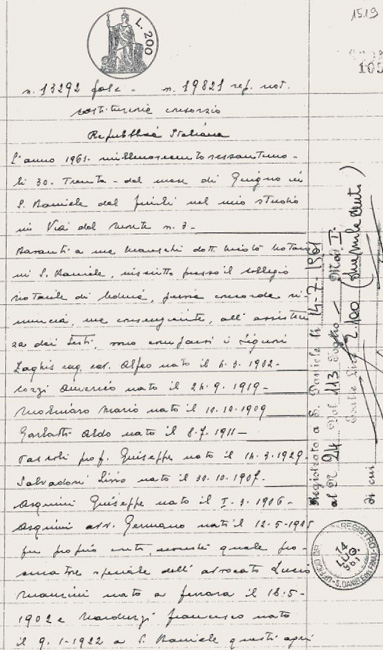 1519
L. 200
n. 13292 fasc. - n. 19821 rep. not.
costituzione consorzio
Repubblica Italiana
L'anno 1961. millenovecentosessantuno -
li 30. Trenta - del mese di Giugno in
S. Daniele del Friuli nel mio studio
in Via del Monte n. 3 -
Davanti a me dott. notaio
in S. Daniele, iscritto presso il collegio
notarile di Udine, senza concorde ri-
nuncia, me consenziente, all'assisten
za dei testi. sono comparsi i signori
cav. Alfeo nato il 6. 3. 1902 -
nato il 26. 9. 1919 -
Molinaro Mario nato il 10. 10. 1909
Aldo nato il 8. 7. 1911 -
prof. Giuseppe nato il 14. 3. 1929.
Salvadori Livio nato il 30. 10. 1907.
Asquini Giuseppe nato il I. 3. 1906 -
Asquini avv. Germano nato il 12. 5 -
in proprio conto, nonché quale pro-
curatore speciale dell'avvocato
nato a il 18. 5 -
1902 e Francesco nato
il 9. 1 - 1922 a S. Daniele questi agri
Registrato a S. Daniele li 14 - 7 - 1961
al N. 24 Vol. 113 Foglio Mod. I.
Esatte Lire
di cui
UFFICIO DEL REGISTRO
14 LUG.
S. DANIELE DEL FRIULI